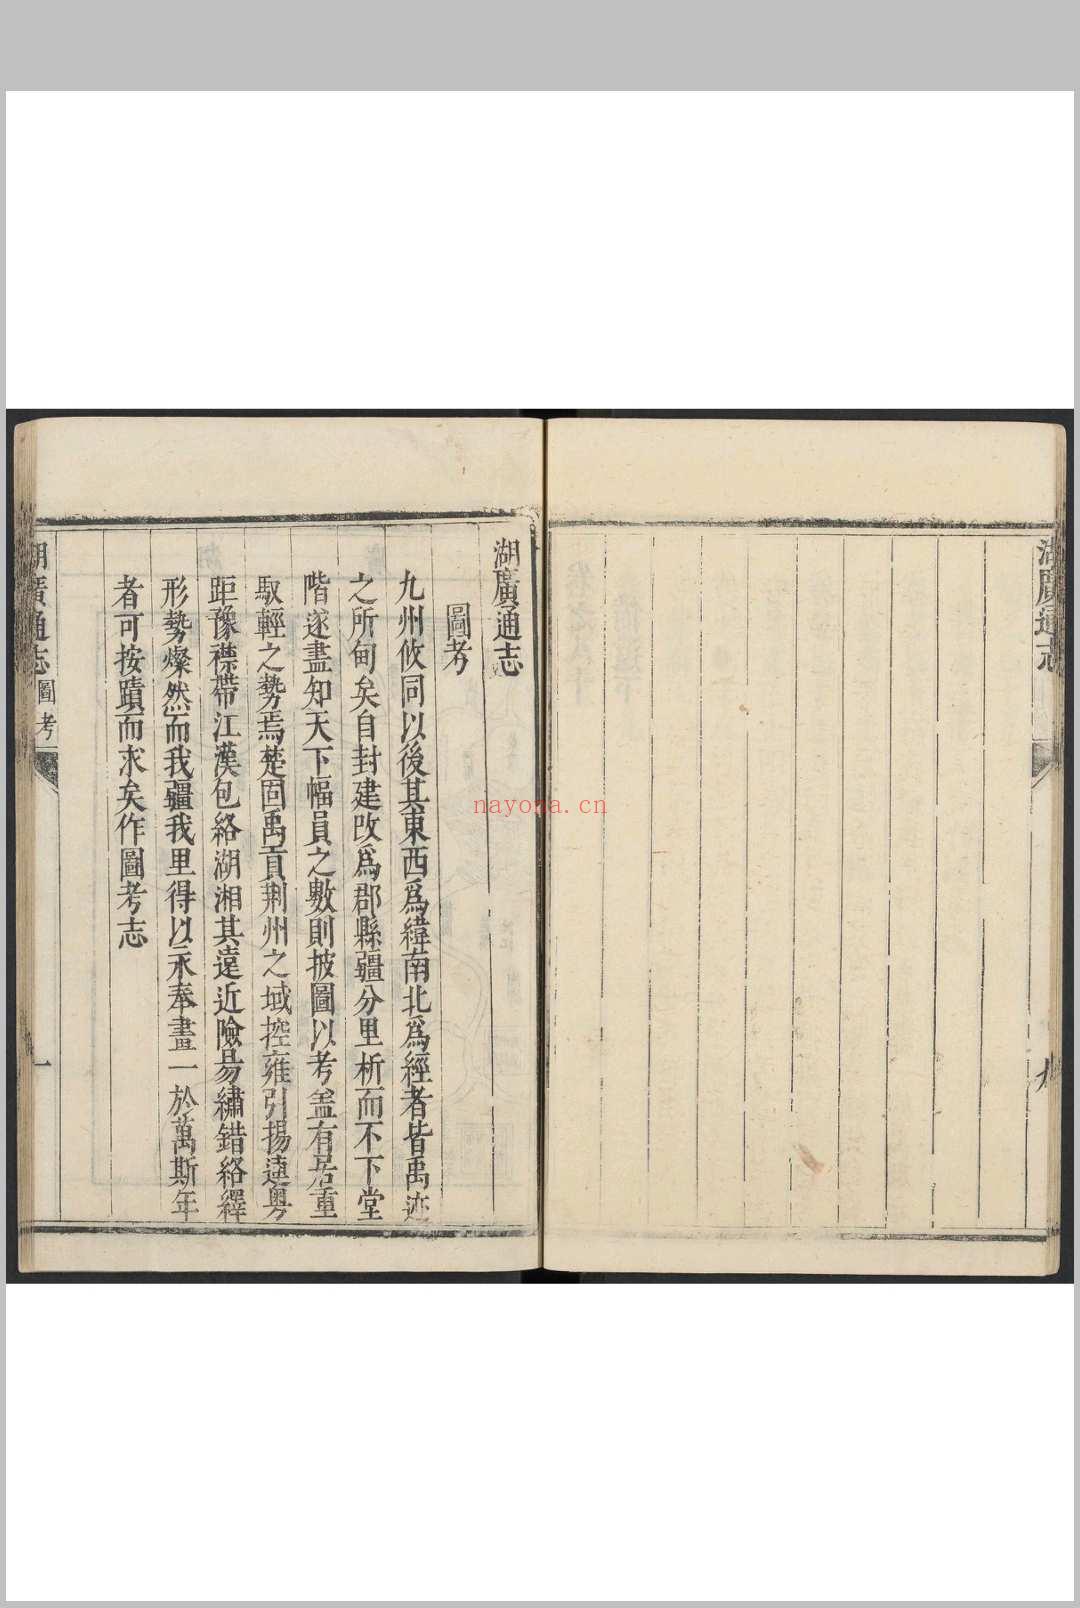 湖廣通志
九
湖廣通志
圖考
九州攸同以後其東西爲緯南北爲經者皆禹迹
之所甸矣自封建改爲郡縣疆分里析而不下堂
階遂盡知天下幅員之數則披圖以考盖有居重
馭輕之勢焉楚固禹貢荆州之域控雍引揚連粵
距豫襟帶江漢包絡湖湘其遠近險易繡錯絡繹
形勢燦然而我疆我里得以永奉畫一於萬斯年
者可按蹟而求矣作圖考志
湖廣通志 圖考
一
nayona.cn